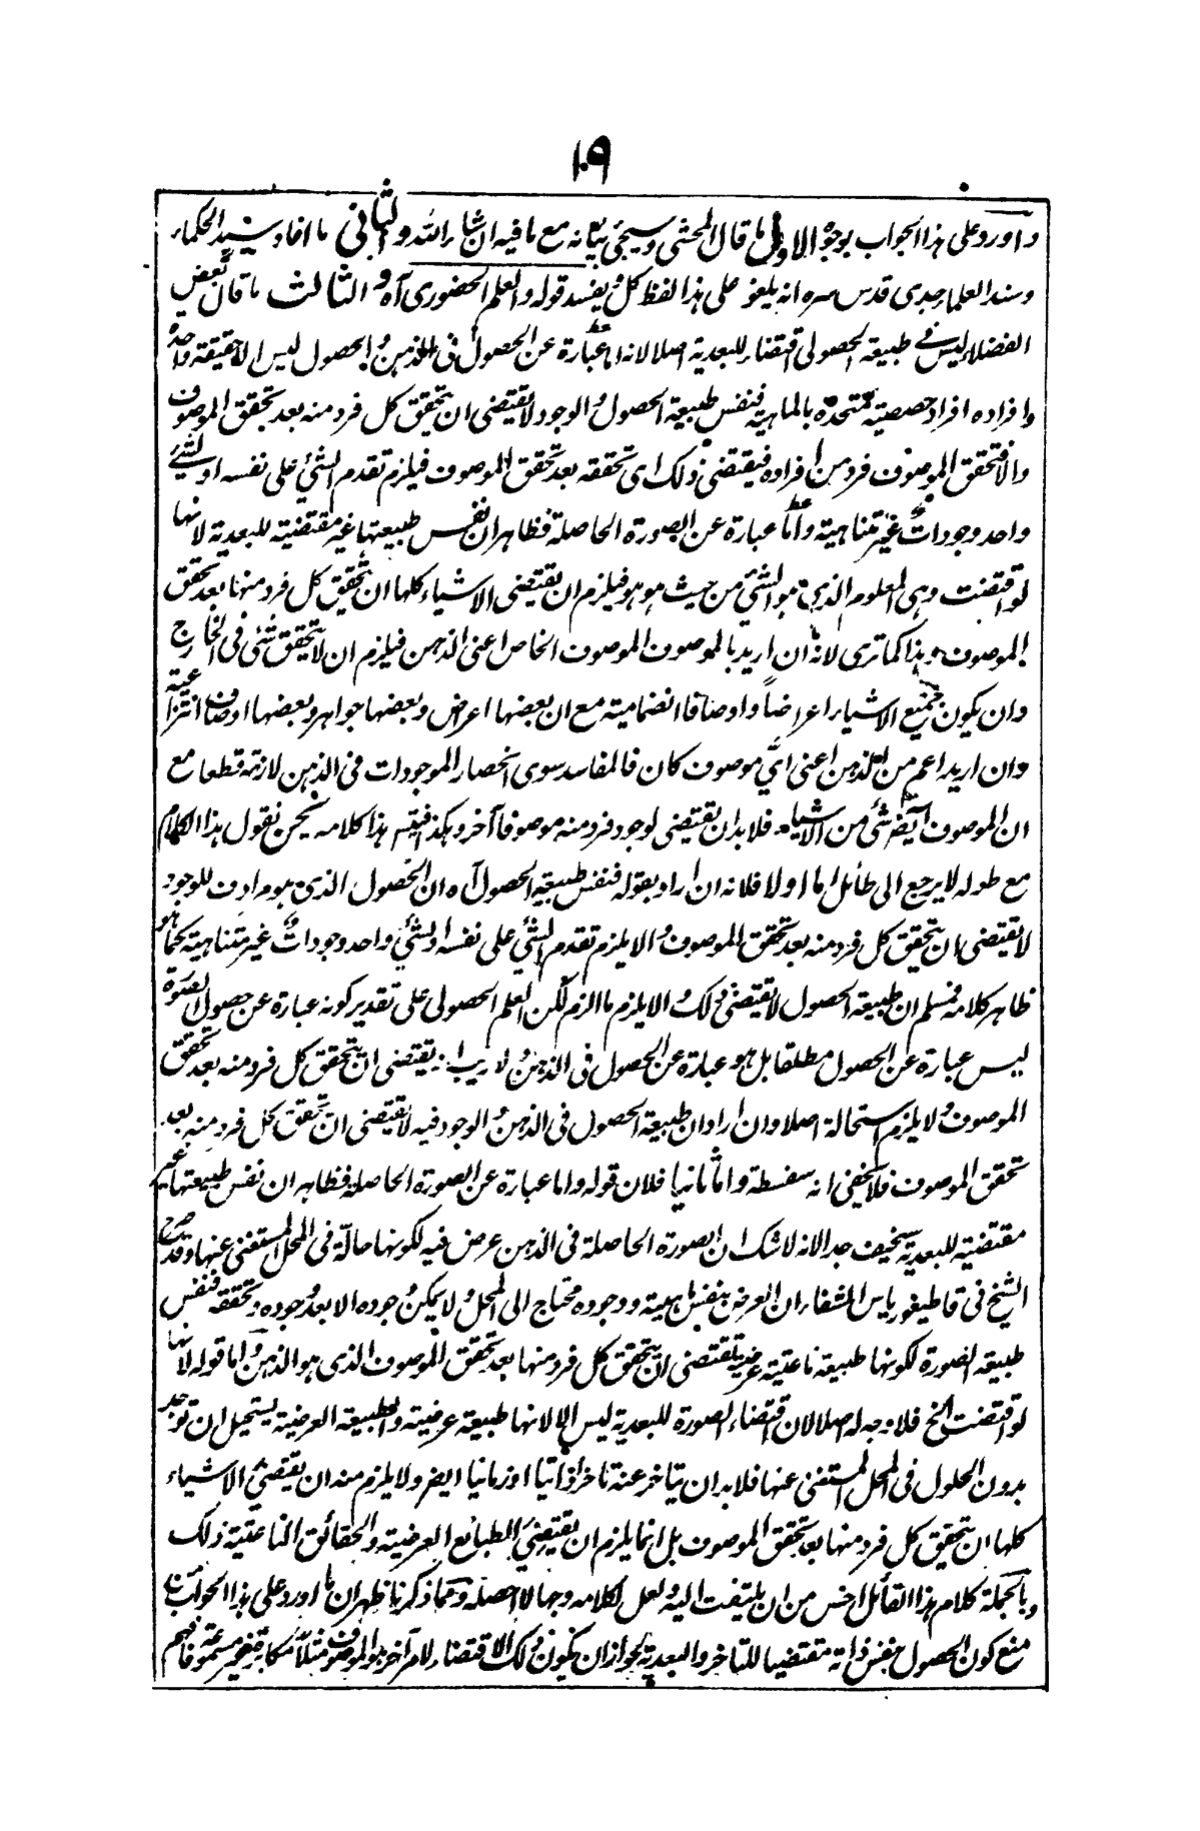 ١٠٩
واورد على هذا الجواب بوجوه الاول ما قال المحشي وسيجيء بيانه مع ما فيه ان شاء الله والثاني ما افاد سيد الحكماء
وسند العلماء جدي قدس سره انه يلغو على هذا لفظ كل ويفسد قوله والعلم الحضوري آه والثالث ما قال بعض
الفضلاء ليس في طبيعة الحصولي اقتضاء للبعدية اصلا لانه اما عبارة عن الحصول في الذهن والحصول ليس الا حقيقة واحدة
وافراده افراد حصصية متحدة بالماهية فنفس طبيعة الحصول والوجود لا تقتضي ان يتحقق كل فرد منه بعد تحقق الموصوف
والا فتحقق الموصوف فرد من افراده فيقتضي ذلك اي تحققه بعد تحقق الموصوف فيلزم تقدم الشئ على نفسه او لشئ
واحد وجودات غير متناهية واما عبارة عن الصورة الحاصلة فظاهر ان نفس طبيعتها غير مقتضية للبعدية لانها
لو اقتضت وهي المعلوم الذي هو الشئ من حيث هو هو فيلزم ان يقتضي الاشياء كلها ان يتحقق كل فرد منها بعد تحقق
الموصوف وهذا كما ترى لانه ان اريد بالموصوف الموصوف الخاص اعني الذهن فيلزم ان لا يتحقق شئ في الخارج
وان يكون جميع الاشياء اعراضا واوصافا انضمامية مع ان بعضها اعراض وبعضها جواهر وبعضها اوصاف انتزاعية
وان اريد اعم من الذهن اعني اي موصوف كان فالمفاسد سوى انحصار الموجودات في الذهن لازمة قطعا مع
ان الموصوف ايضا شئ من الاشياء فلا بد ان يقتضي لوجود فرد منه موصوفا آخر وهكذا فيتسـ هذا كلامه نحن نقول هذا الكلام
مع طوله لا يرجع الى طائل اما اولا فلانه ان اراد بقوله فنفس طبيعة الحصول آه ان الحصول الذي هو مرادف للوجود
لا تقتضي ان يتحقق كل فرد منه بعد تحقق الموصوف والا يلزم تقدم الشئ على نفسه او لشئ واحد وجودات غير متناهية كما هو
ظاهر كلامه فمسلم ان طبيعة الحصول لا تقتضي ذلك والا يلزم ما الزم لكن العلم الحصولي على تقدير كونه عبارة عن حصول الصورة
ليس عبارة عن الحصول مطلقا بل هو عبارة عن الحصول في الذهن ولا ريب انه يقتضي ان يتحقق كل فرد منه بعد تحقق
الموصوف ولا يلزم استحالة اصلا وان اراد ان طبيعة الحصول في الذهن والوجود فيه لا تقتضي ان يتحقق كل فرد منه بعد
تحقق الموصوف فلا يخفى انه سفسطة واما ثانيا فلان قوله واما عبارة عن الصورة الحاصلة فظاهر ان نفس طبيعتها غير
مقتضية للبعدية سخيف جدا لانه لا شك ان الصورة الحاصلة في الذهن عرض فيه لكونها حالة في المحل المستغني عنها وقد صرح
الشيخ في قاطيغورياس الشفاء ان العرض بنفس ماهيته ووجوده محتاج الى المحل ولا يمكن وجوده الا بعد وجوده وتحققه فنفس
طبيعة الصورة لكونها طبيعة ناعتية عرضية تقتضي ان يتحقق كل فرد منها بعد تحقق الموصوف الذي هو الذهن واما قوله لانها
لو اقتضت الخ فلا وجه له اصلا لان اقتضاء الصورة للبعدية ليس الا لانها طبيعة عرضية والطبيعة العرضية يستحيل ان توجد
بدون الحلول في المحل المستغني عنها فلا بد ان يتاخر عنه تاخرا ذاتيا او زمانيا ايضا ولا يلزم منه ان يقتضي الاشياء
كلها ان يتحقق كل فرد منها بعد تحقق الموصوف بل انما يلزم ان يقتضي الطبائع العرضية والحقائق الناعتية ذلك
وبالجملة كلام هذا القائل اخس من ان يلتفت اليه ولعل لكلامه وجها لا احصله ومما ذكرنا ظهر ان ما اورد على هذا الجواب بانا
نمنع كون الحصول بنفس ذاته مقتضيا للتاخر والبعدية لجواز ان يكون ذلك الاقتضاء لامر آخر هو الموصوف مثلا مكابرة غير مسموعة فافهم